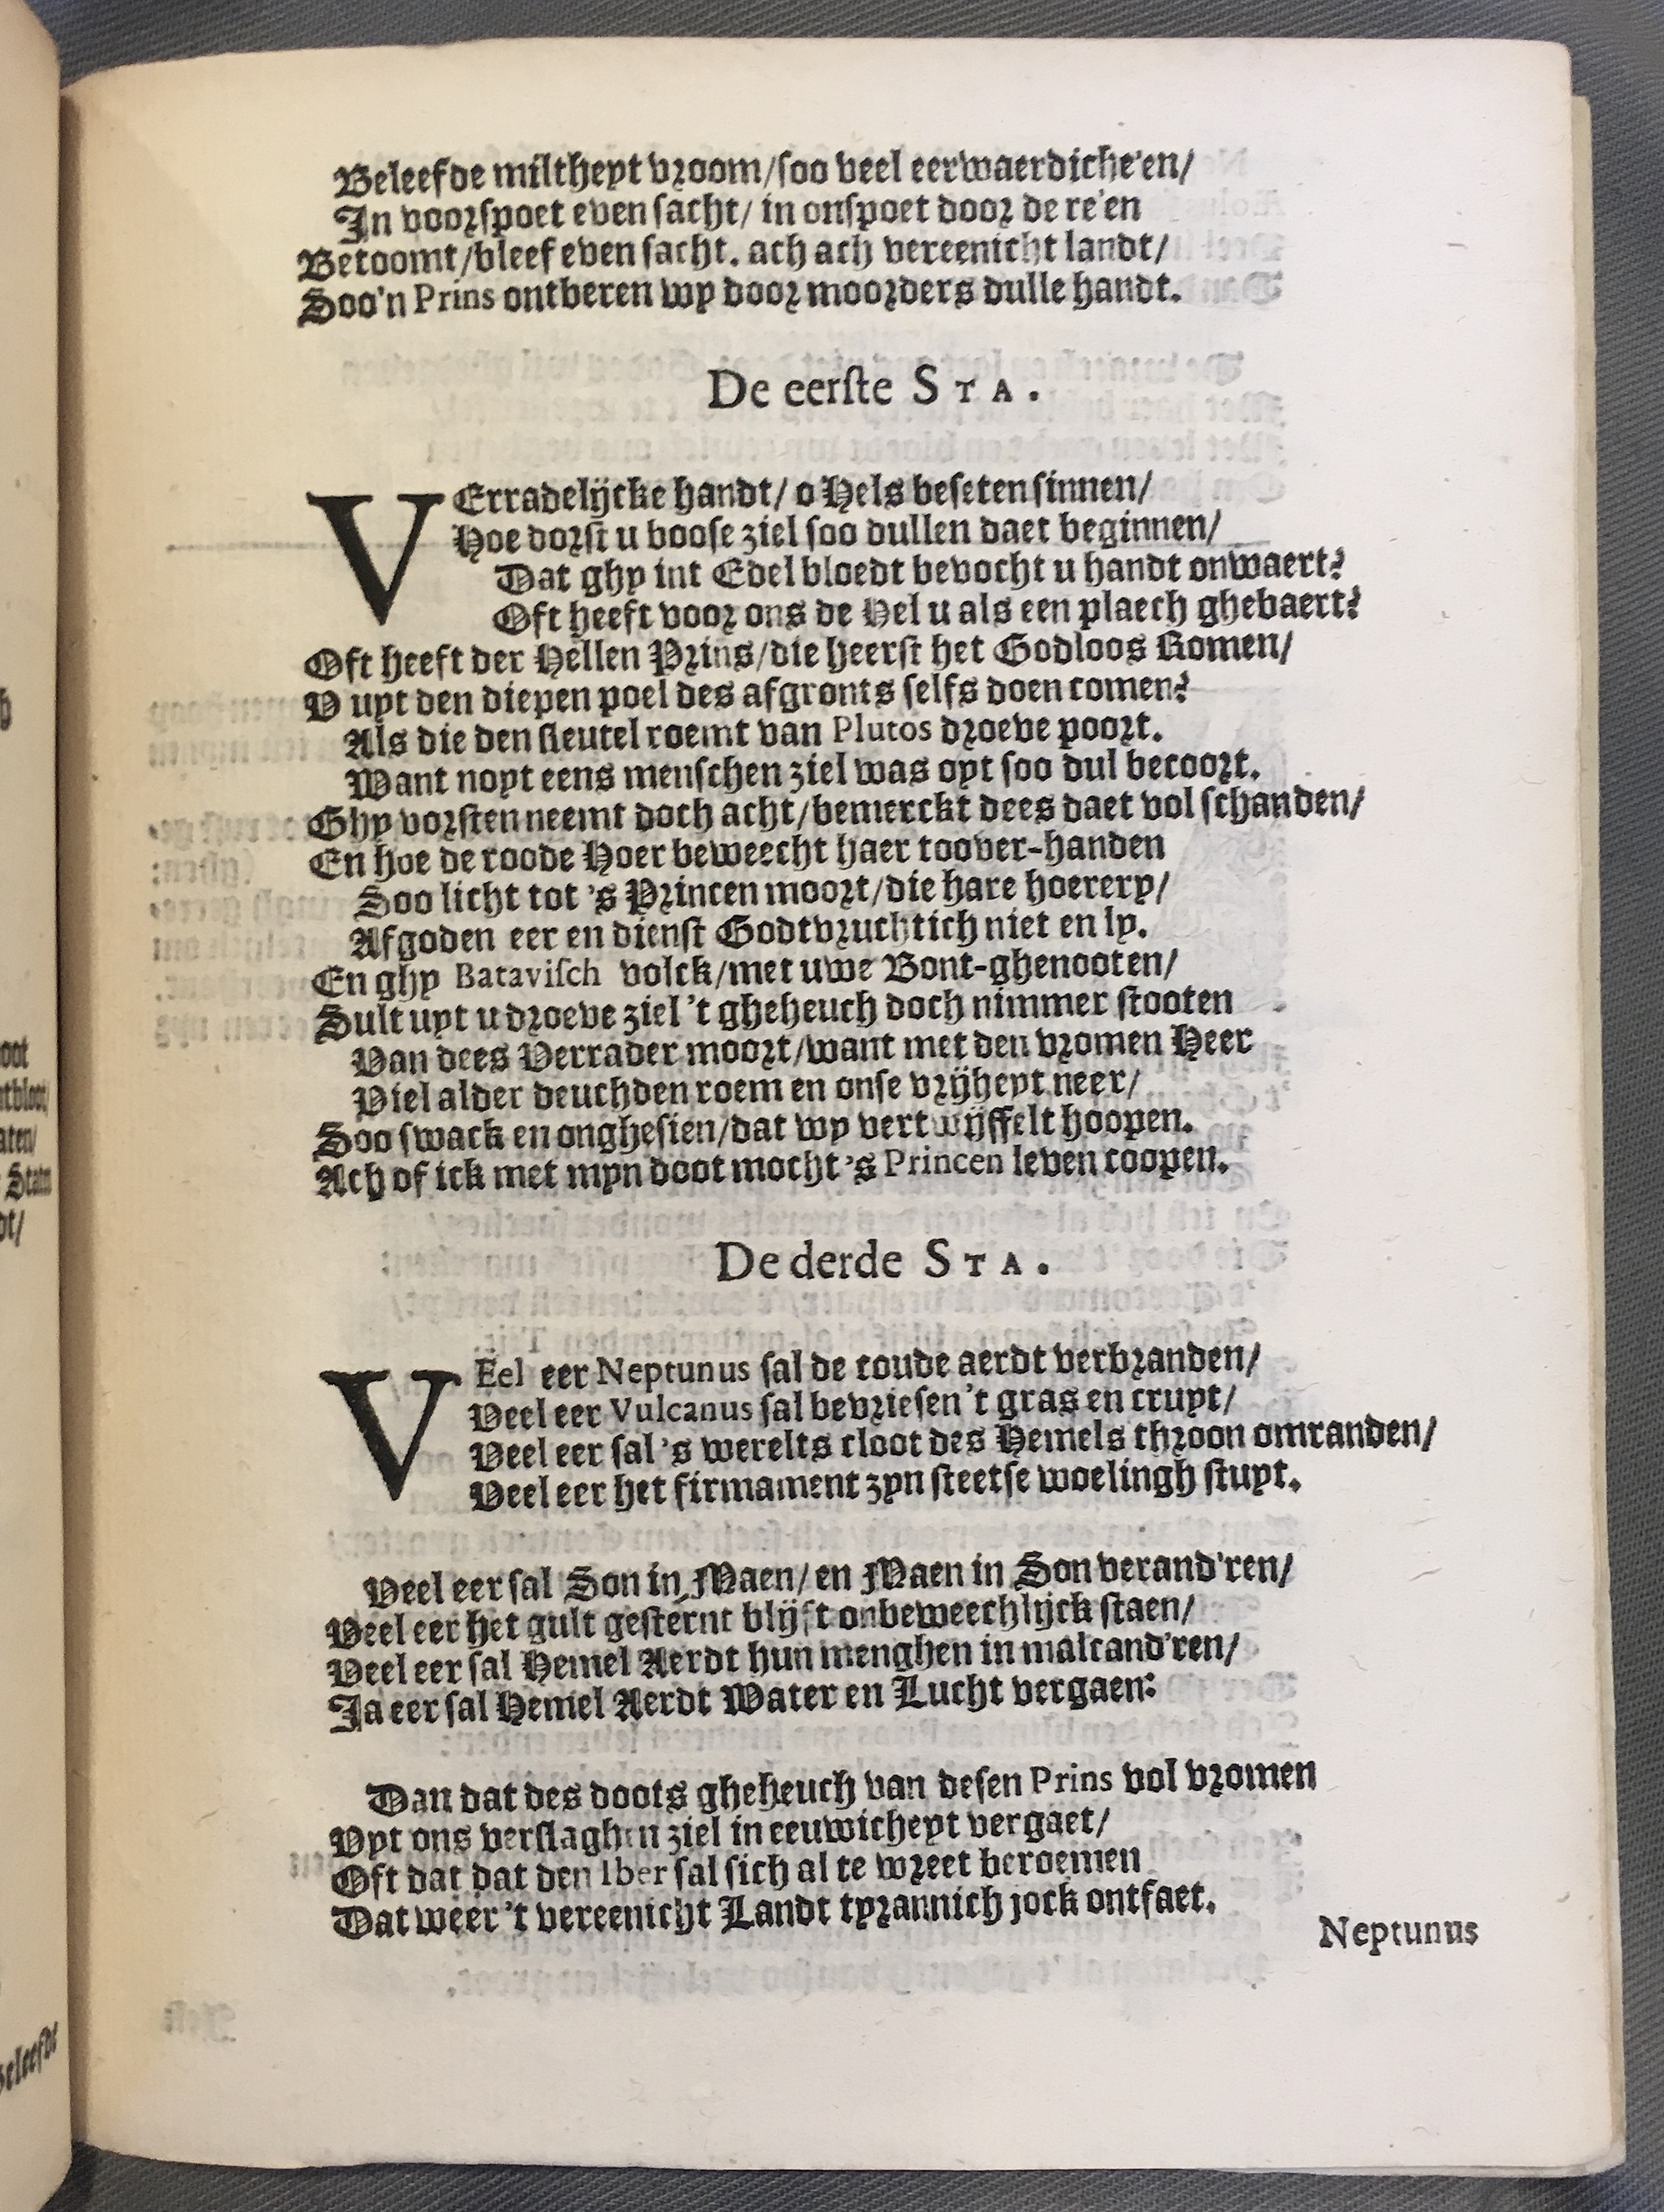 Beleefde miltheyt vroom/soo veel eerwaerdiche'en/
In voorspoet even sacht/ in onspoet door de re'en
Betoomt/bleef even sacht. ach ach vereenicht landt/
Soo'n Prins ontberen wy door moorders dulle handt.
De eerste STA.
VErradelijcke handt/ o Hels beseten sinnen/
Hoe dorst u boose ziel soo dullen daet beginnen/
Dat ghy int Edel bloedt bevocht u handt onwaert?
Oft heeft voor ons de Hel u als een plaech ghebaert?
Oft heeft der Hellen Prins/die heerst het Godloos Romen/
V uyt den diepen poel des afgronts selfs doen comen?
Als die den sleutel roemt van Plutos droeve poort.
Want noyt eens menschen ziel was oyt soo dul becoort.
Ghy vorsten neemt doch acht/bemerckt dees daet vol schanden/
En hoe de roode Hoer beweecht haer toover-handen
Soo licht tot 's Princen moort/die hare hoerery/
Afgoden eer en dienst Godtvruchtich niet en ly.
En ghy Batavisch volck/met uwe Bont-ghenooten/
Sult uyt u droeve ziel 't gheheuch doch nimmer stooten
Van dees Verrader moort/want met den vromen Heer
Viel alder deuchden roem en onse vrijheyt neer/
Soo swack en onghesien/dat wy vertwijffelt hoopen.
Ach of ick met myn doot mocht 's Princen leven coopen.
De derde STA.
VEel eer Neptunus sal de coude aerdt verbranden/
Veel eer Vulcanus sal bevriesen 't gras en cruyt/
Veel eer sal 's werelts cloot des Hemels throon omranden/
Veel eer het firmament zyn steetse woelingh stuyt.
Veel eer sal Son in Maen/ en Maen in Son verand'ren/
Veel eer het gult gesternt blijft onbeweechlijck staen/
Veel eer sal Hemel Aerdt hun menghen in malcand'ren/
Ja eer sal Hemel Aerdt Water en Lucht vergaen:
Dan dat des doots gheheuch van desen Prins vol vromen
Vyt ons verslaghen ziel in eeuwicheyt vergaet/
Oft dat dat den Iber sal sich al te wreet beroemen
Dat weer 't vereenicht Landt tyrannich jock ontfaet.
Neptunus